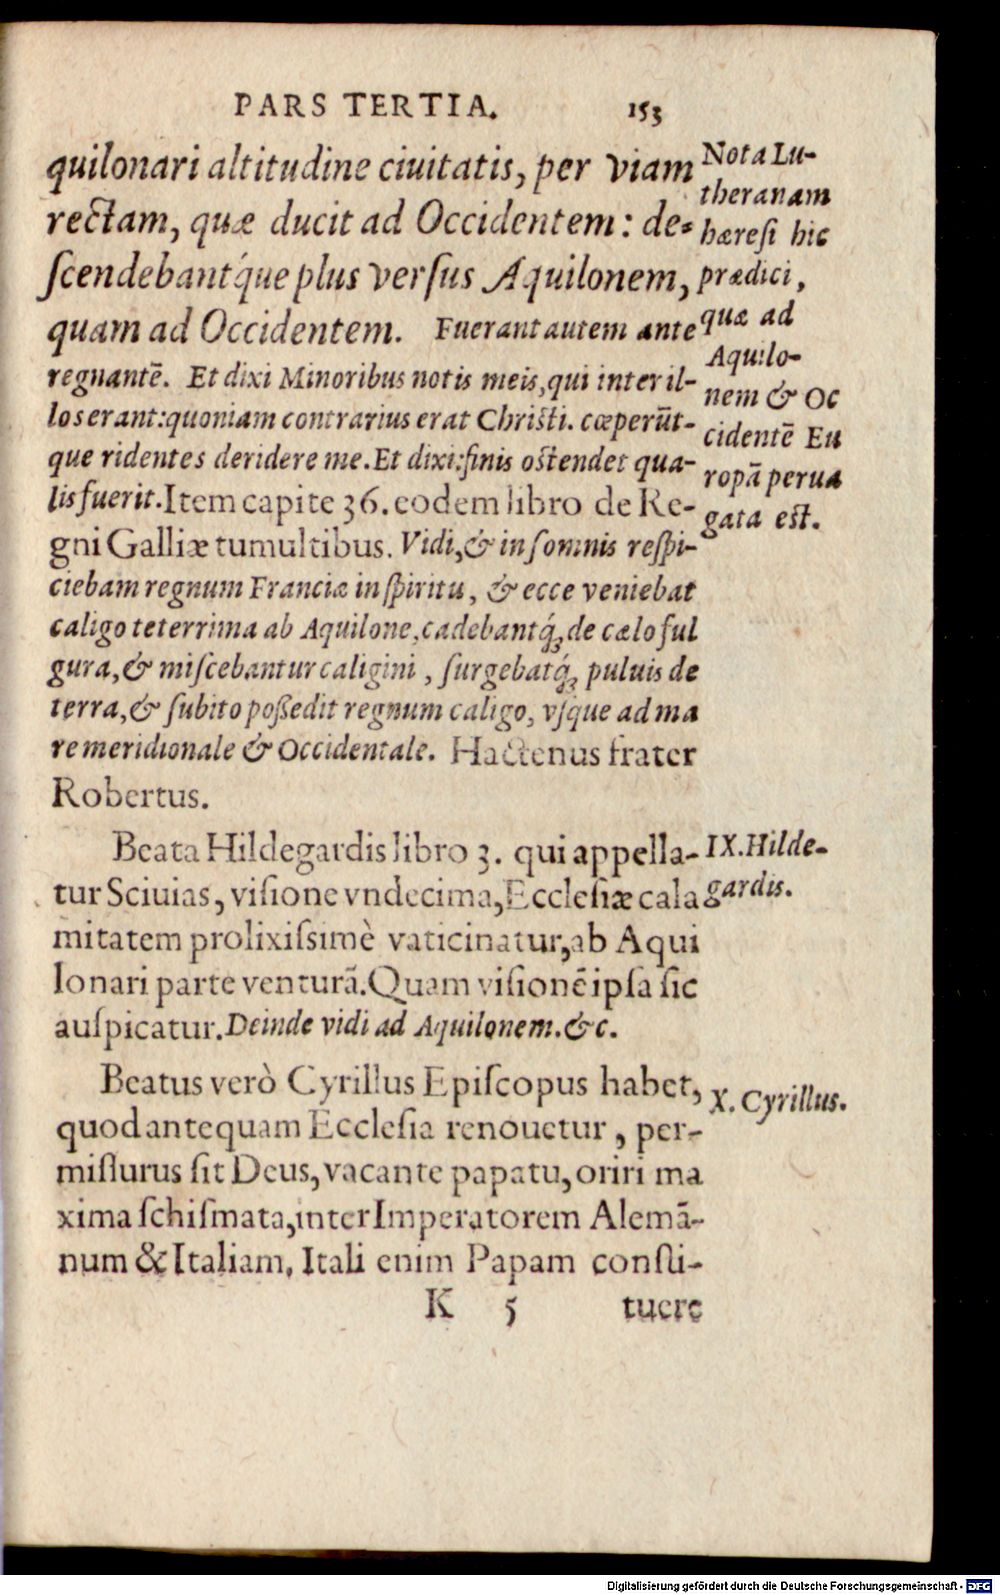 PARS TERTIA. 153
quilonari altitudine ciuitatis, per viam
rectam, quæ ducit ad Occidentem: de-
ſcendebantq́ue plus verſus Aquilonem,
quam ad Occidentem. Fuerant autem ante
regnantē. Et dixi Minoribus notis meis, qui inter il-
los erant: quoniam contrarius erat Chriſti. cœperūt-
que ridentes deridere me. Et dixi: finis oſtendet qua-
lis fuerit. Item capite 36. eodem libro de Re-
gni Galliæ tumultibus. Vidi, & in ſomnis reſpi-
ciebam regnum Franciæ in ſpiritu, & ecce veniebat
caligo teterrima ab Aquilone, cadebantq́; de cælo ful
gura, & miſcebantur caligini, ſurgebatq́; puluis de
terra, & ſubito poſſedit regnum caligo, vſque ad ma
re meridionale & Occidentale. Hactenus frater
Robertus.
Nota Lu-
theranam
hæreſi hic
prædici,
quæ ad
Aquilo-
nem & Oc
cidentē Eu
ropā perua
gata eſt.
Beata Hildegardis libro 3. qui appella-
tur Sciuias, viſione vndecima, Eccleſiæ cala
mitatem prolixiſsimè vaticinatur, ab Aqui
lonari parte venturā. Quam viſionē ipſa ſic
auſpicatur. Deinde vidi ad Aquilonem. &c.
IX. Hilde-
gardis.
Beatus verò Cyrillus Epiſcopus habet,
quod antequam Eccleſia renouetur, per-
miſſurus ſit Deus, vacante papatu, oriri ma
xima ſchiſmata, inter Imperatorem Alemā-
num & Italiam. Itali enim Papam conſti-
X. Cyrillus.
K 5 tuere
Digitalisierung gefördert durch die Deutsche Forschungsgemeinschaft - DFG